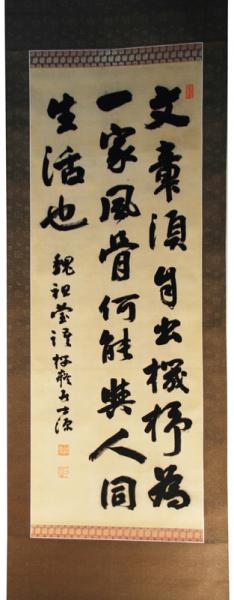 文章須自出機杼為
一家風骨何能共人同
生活也
魏祖瑩語